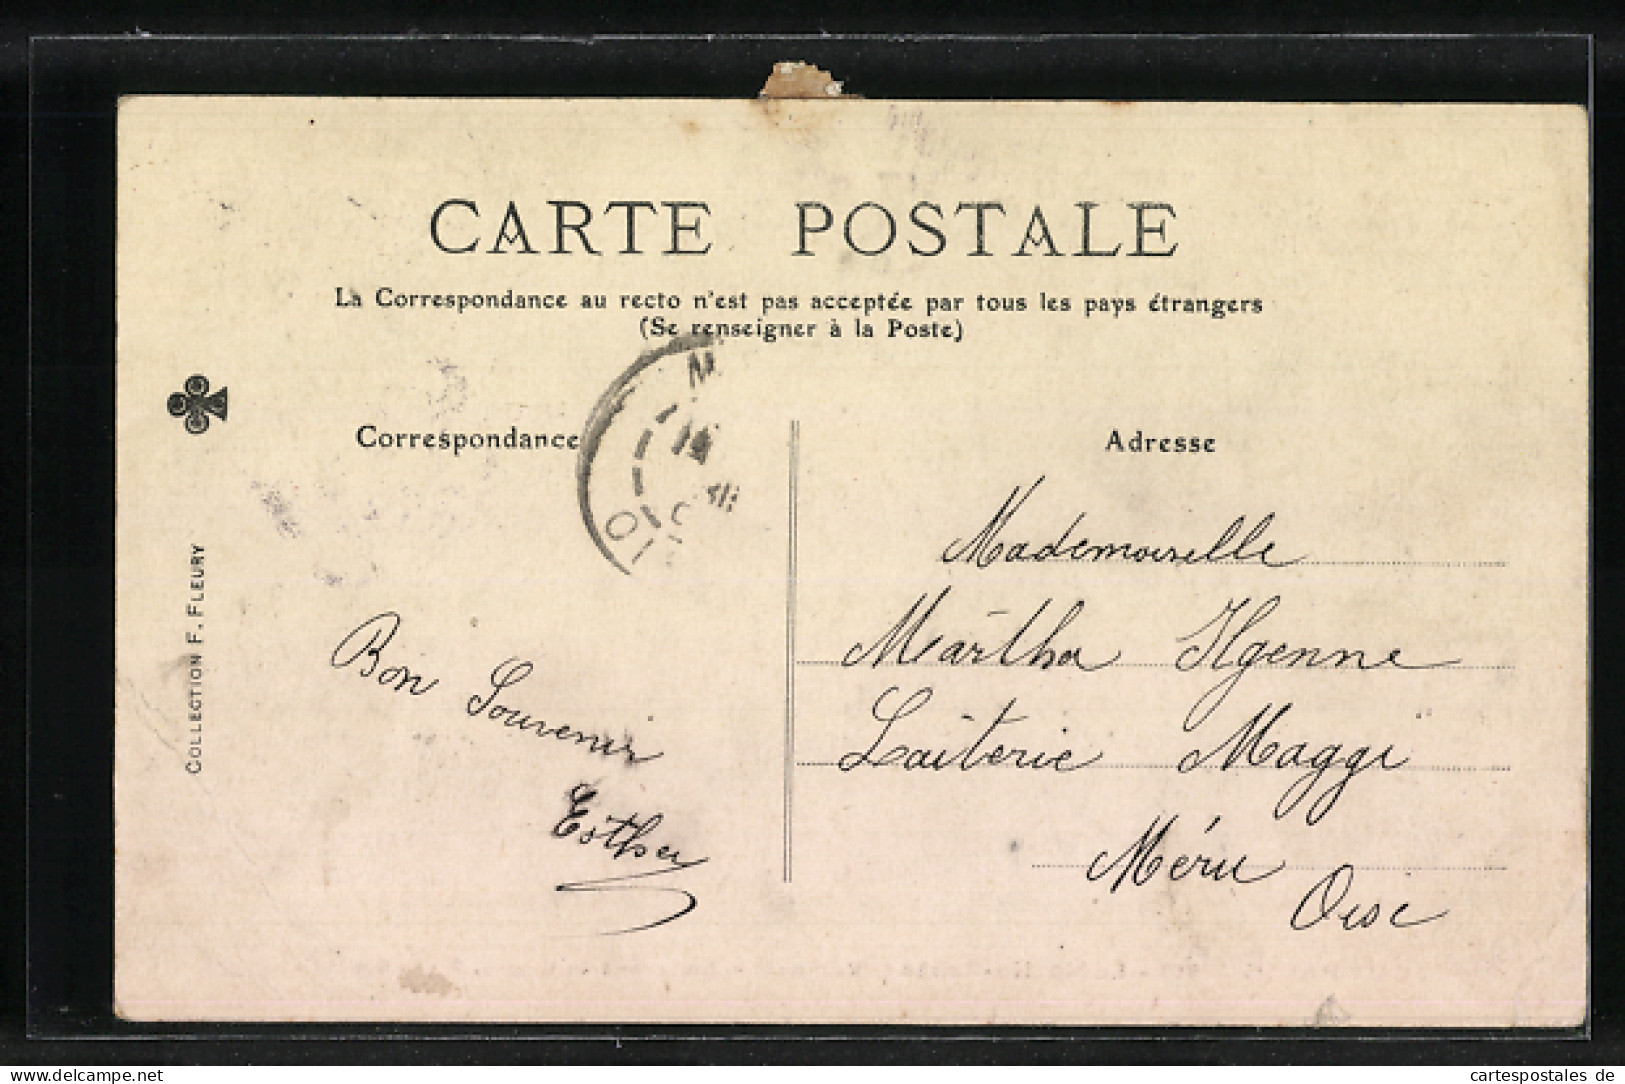 CARTE POSTALE
La Correspondance au recto n'est pas acceptée par tous les pays étrangers
(Se renseigner à la Poste)
Correspondance
Adresse
COLLECTION F. FLEURY
Bon Souvenir
Esther
Mademoiselle
Martha Ilgenne
Laiterie Maggi
Méru
Oise
www.delcampe.net
cartespostales de